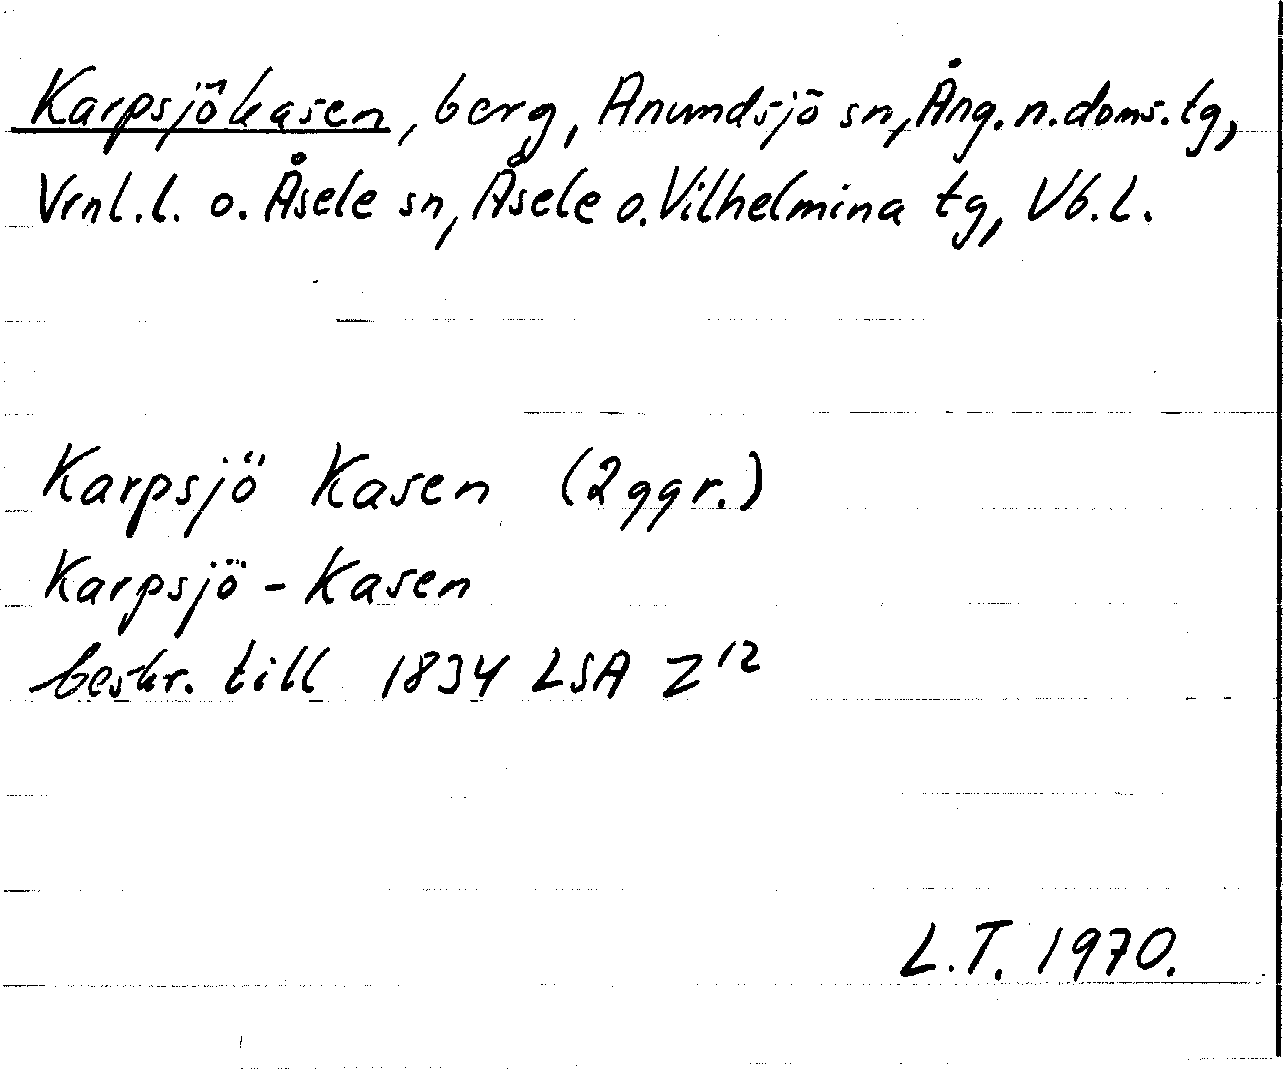 Karpsjökasen, berg, Anundsjö sn, Ång. n. doms. tg,
Vrnl. l. o. Åsele sn, Åsele o. Vilhelmina tg, Vb. l.
Karpsjö Kasen (2 ggr.)
Karpsjö - Kasen
beskr. till 1834 LSA Z 12
L.T. 1970.